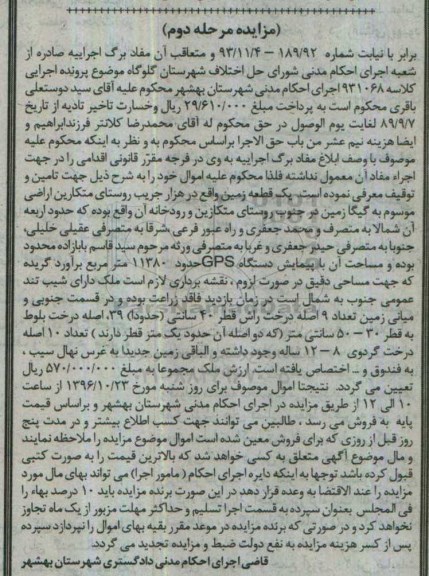 (مزایده مرحله دوم)
برابر با نیابت شماره ۱۸۹/۹۲ – ۹۳/۱۱/۴ و متعاقب آن مفاد برگ اجراییه صادره از
شعبه اجرای احکام مدنی شورای حل اختلاف شهرستان گلوگاه موضوع پرونده اجرایی
کلاسه ۹۳۱۰۶۸ اجرای احکام مدنی شهرستان بهشهر محکوم علیه آقای سید دوستعلی
باقری محکوم است به پرداخت مبلغ ۲۹/۶۱۰/۰۰۰ ریال وخسارت تاخیر تادیه از تاریخ
۸۹/۹/۷ لغایت یوم الوصول در حق محکوم له آقای محمدرضا کلانتر فرزندابراهیم و
ایضا هزینه نیم عشر من باب حق الاجرا براساس محکوم به و نظر به اینکه محکوم علیه
موصوف با وصف ابلاغ مفاد برگ اجراییه به وی در فرجه مقرر قانونی اقدامی را در جهت
اجراء مفاد آن معمول نداشته فلذا محکوم علیه اموال خود را به شرح ذیل جهت تامین و
توقیف معرفی نموده است. یک قطعه زمین واقع در هزار جریب روستای متکازین اراضی
موسوم به گیگا زمین در جنوب روستای متکازین و رودخانه آن واقع بوده که حدود اربعه
آن شمالا به متصرف و محمد جعفری و راه عبور فرعی ،شرقا به متصرفی عقیلی خلیلی،
جنوبا به متصرفی حیدر جعفری و غربا به متصرفی ورثه مرحوم سید قاسم بابازاده محدود
بوده و مساحت آن با پیمایش دستگاه GPSحدود ۱۱۳۸۰ متر مربع برآورد گریده
که جهت مساحی دقیق در صورت لزوم ، نقشه برداری لازم است ملک دارای شیب تند
عمومی جنوب به شمال است در زمان بازدید فاقد زراعت بوده و در قسمت جنوبی و
میانی زمین تعداد ۹ اصله درخت راش قطر ۴۰ سانتی (حدودا) ،۳۹ اصله درخت بلوط
به قطر ۳۰ – ۵۰ سانتی متر (که دو اصله آن حدود یک متر قطر دارند ) تعداد ۱۰ اصله
درخت گردوی ۸ – ۱۲ ساله وجود داشته و الباقی زمین جدیدا به غرس نهال سیب ،
به فندوق و ... اختصاص یافته است. ارزش ملک مجموعا به مبلغ ۵۷۰/۰۰۰/۰۰۰ ریال
تعیین می گردد. نتیجتا اموال موصوف برای روز شنبه مورخ ۱۳۹۶/۱۰/۲۳ از ساعت
۱۰ الی ۱۲ از طریق مزایده در اجرای احکام مدنی شهرستان بهشهر و براساس قیمت
پایه به فروش می رسد ، طالبین می توانند جهت کسب اطلاع بیشتر و در مدت پنج
روز قبل از روزی که برای فروش معین شده است اموال موضوع مزایده را ملاحظه نمایند
و مال موضوع آگهی متعلق به کسی خواهد شد که بالاترین قیمت را به صورت کتبی
قبول کرده باشد توجها به اینکه دایره اجرای احکام ( مامور اجرا) می تواند بهای مال مورد
مزایده را عند الاقتضا به وعده قرار دهد در این صورت برنده مزایده باید ۱۰ درصد بهاء را
فی المجلس بعنوان سپرده به قسمت اجرا تسلیم و حداکثر مهلت مزبور از یک ماه تجاوز
نخواهد کرد و در صورتی که برنده مزایده در موعد مقرر بقیه بهای اموال را نپردازد سپرده
پس از کسر هزینه مزایده به نفع دولت ضبط و مزایده تجدید می گردد.
قاضی اجرای احکام مدنی دادگستری شهرستان بهشهر